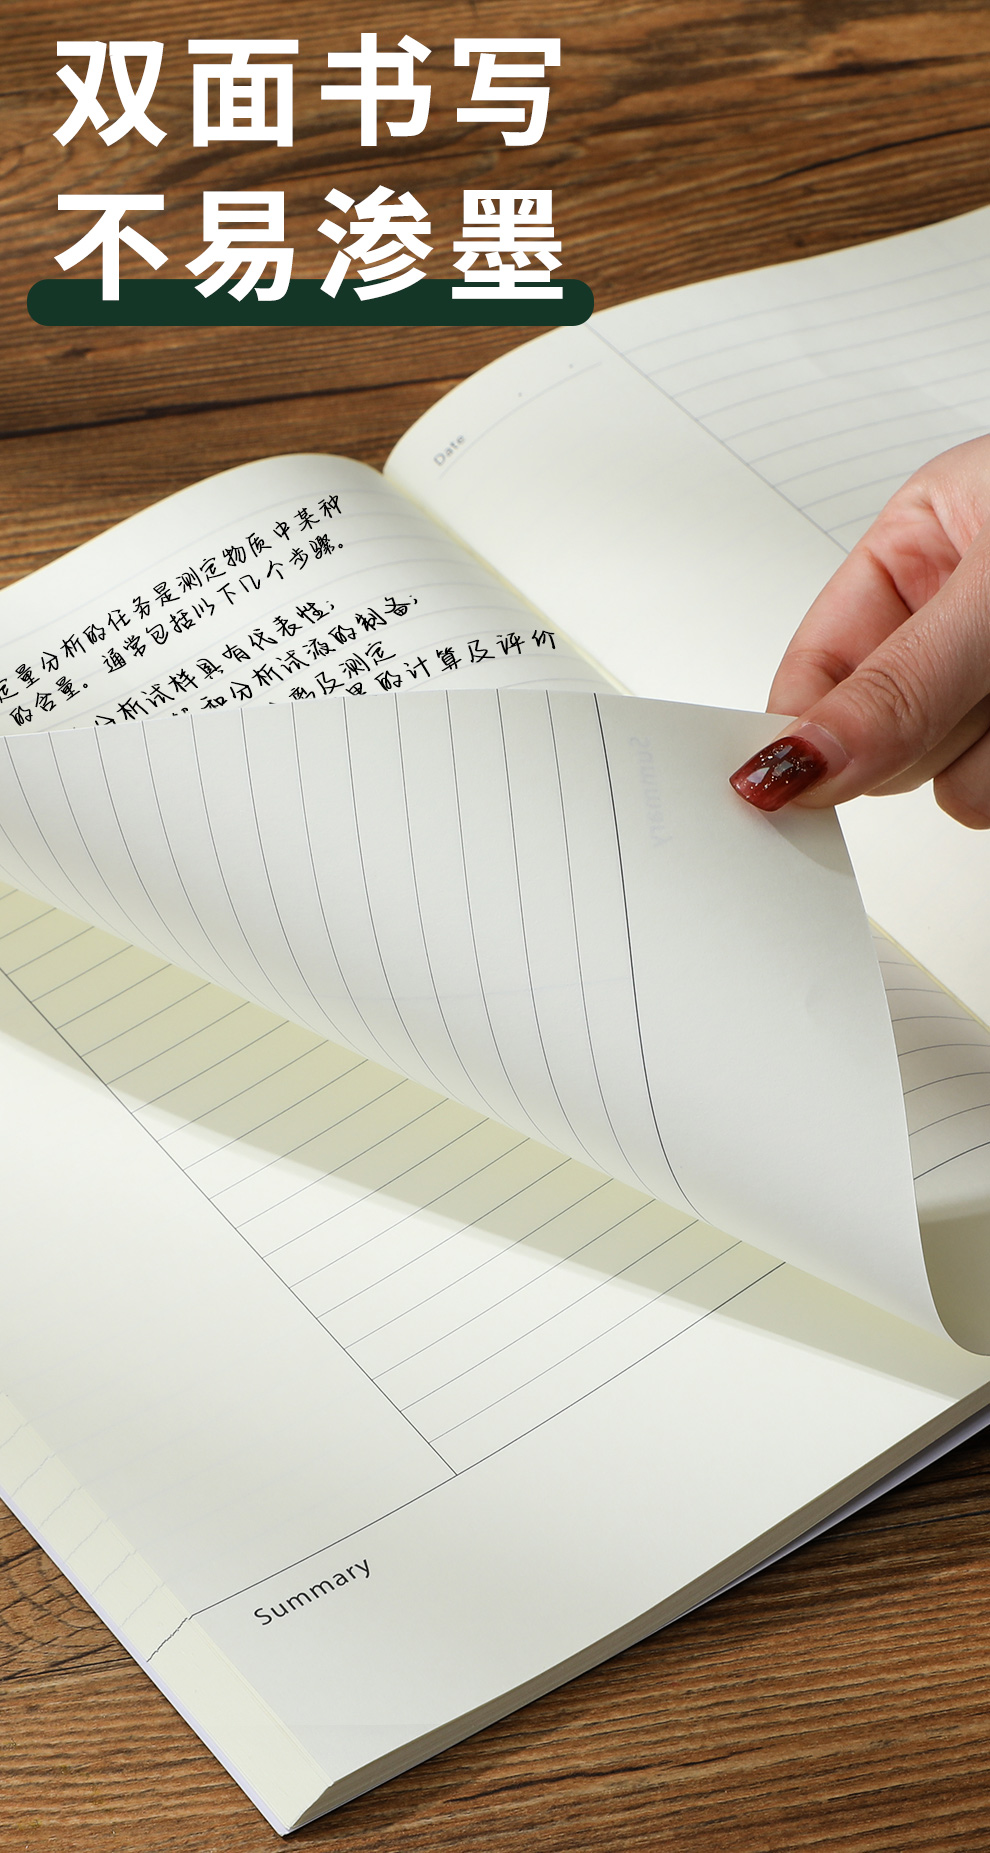 双面书写
不易渗墨
Date
定量分析的任务是测定物质中某种
的含量。通常包括以下几个步骤。
分析试样具有代表性;
和分析试液的制备;
离及测定
果的计算及评价
Summary
Summary